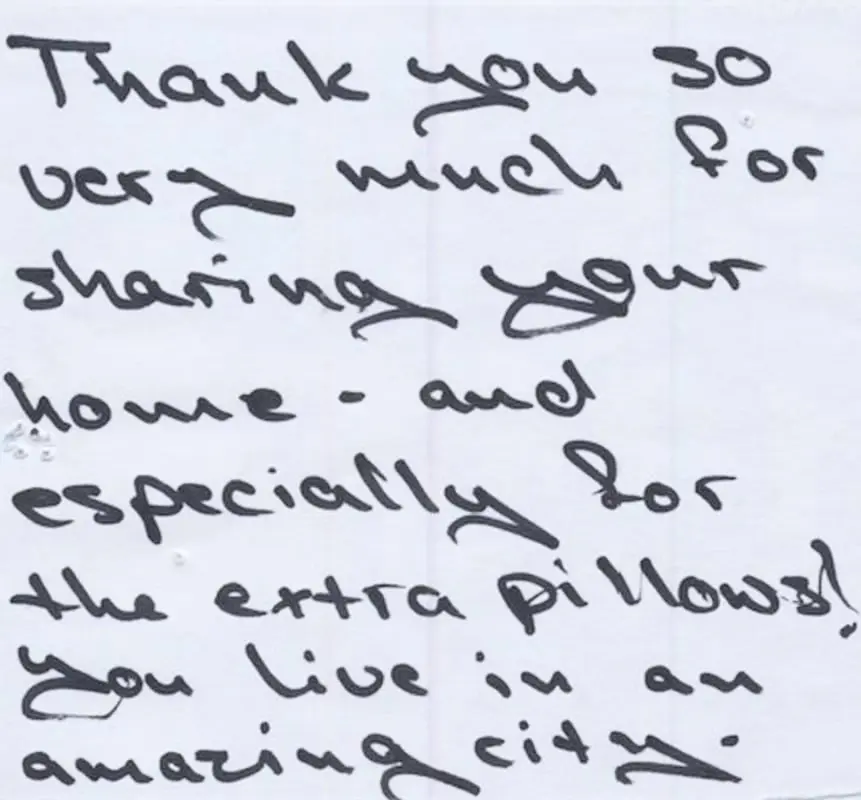 Thank you so
very much for
sharing your
home - and
especially for
the extra pillows!
You live in an
amazing city.